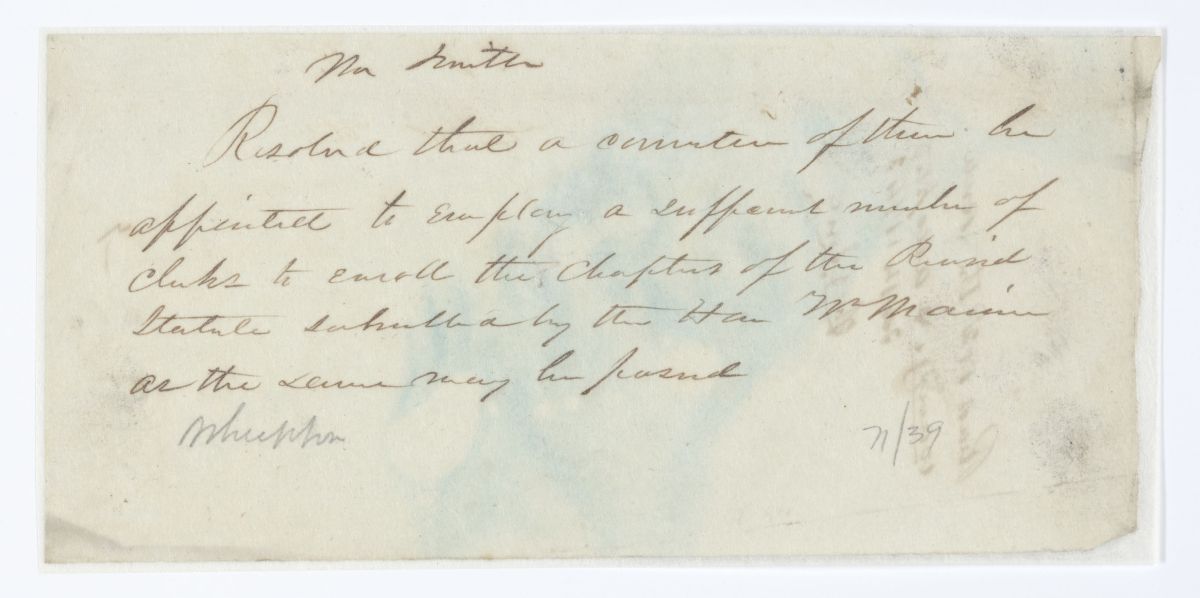 Mr Smith
Resolved that a committee of three be
appointed to employ a sufficient number of
clerks to enroll the Chapters of the Revised
Statute submitted by the Hon Wm
as the same may be passed
71/39